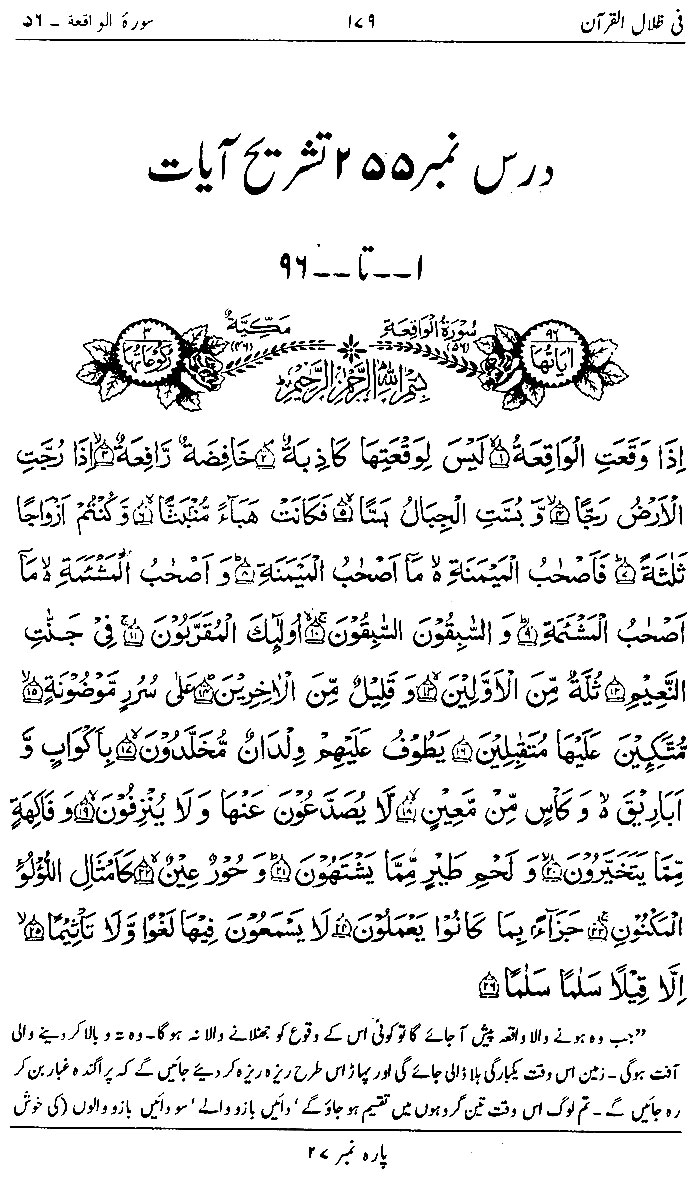 فی ظلال القرآن ۱۷۹ سورۃ الواقعۃ - ۵۶
درس نمبر ۲۵۵ تشریح آیات
۱--تا--۹۶
سُوْرَۃُ الْوَاقِعَۃِ (۵۶) مَکِّیَّۃٌ (۴۶)
۹۶ اٰیَاتُهَا ۳ رُکُوْعَاتُهَا
بِسْمِ اللّٰهِ الرَّحْمٰنِ الرَّحِیْمِ
اِذَا وَقَعَتِ الْوَاقِعَةُ ۙ﴿۱﴾ لَیْسَ لِوَقْعَتِهَا كَاذِبَةٌ ۘ﴿۲﴾ خَافِضَةٌ رَّافِعَةٌ ۙ﴿۳﴾ اِذَا رُجَّتِ
الْاَرْضُ رَجًّا ۙ﴿۴﴾ وَّ بُسَّتِ الْجِبَالُ بَسًّا ۙ﴿۵﴾ فَكَانَتْ هَبَآءً مُّنْۢبَثًّا ۙ﴿۶﴾ وَّ كُنْتُمْ اَزْوَاجًا
ثَلٰثَةً ؕ﴿۷﴾ فَاَصْحٰبُ الْمَیْمَنَةِ ۙ۬ مَاۤ اَصْحٰبُ الْمَیْمَنَةِ ؕ﴿۸﴾ وَ اَصْحٰبُ الْمَشْـَٔمَةِ ۙ۬ مَاۤ
اَصْحٰبُ الْمَشْـَٔمَةِ ؕ﴿۹﴾ وَ السّٰبِقُوْنَ السّٰبِقُوْنَ ۚۙ﴿۱۰﴾ اُولٰٓىِٕكَ الْمُقَرَّبُوْنَ ۚ﴿۱۱﴾ فِیْ جَنّٰتِ
النَّعِیْمِ ﴿۱۲﴾ ثُلَّةٌ مِّنَ الْاَوَّلِیْنَ ۙ﴿۱۳﴾ وَ قَلِیْلٌ مِّنَ الْاٰخِرِیْنَ ؕ﴿۱۴﴾ عَلٰی سُرُرٍ مَّوْضُوْنَةٍ ۙ﴿۱۵﴾
مُّتَّكِـِٕیْنَ عَلَیْهَا مُتَقٰبِلِیْنَ ﴿۱۶﴾ یَطُوْفُ عَلَیْهِمْ وِلْدَانٌ مُّخَلَّدُوْنَ ۙ﴿۱۷﴾ بِاَكْوَابٍ وَّ
اَبَارِیْقَ ۙ۬ وَ كَاْسٍ مِّنْ مَّعِیْنٍ ۙ﴿۱۸﴾ لَّا یُصَدَّعُوْنَ عَنْهَا وَ لَا یُنْزِفُوْنَ ۙ﴿۱۹﴾ وَ فَاكِهَةٍ
مِّمَّا یَتَخَیَّرُوْنَ ۙ﴿۲۰﴾ وَ لَحْمِ طَیْرٍ مِّمَّا یَشْتَهُوْنَ ؕ﴿۲۱﴾ وَ حُوْرٌ عِیْنٌ ۙ﴿۲۲﴾ كَاَمْثَالِ اللُّؤْلُؤِ
الْمَكْنُوْنِ ۚ﴿۲۳﴾ جَزَآءًۢ بِمَا كَانُوْا یَعْمَلُوْنَ ﴿۲۴﴾ لَا یَسْمَعُوْنَ فِیْهَا لَغْوًا وَّ لَا تَاْثِیْمًا ۙ﴿۲۵﴾
اِلَّا قِیْلًا سَلٰمًا سَلٰمًا ﴿۲۶﴾
”جب وہ ہونے والا واقعہ پیش آ جائے گا تو کوئی اس کے وقوع کو جھٹلانے والا نہ ہو گا۔ وہ تہ و بالا کر دینے والی
آفت ہوگی۔ زمین اس وقت یکبارگی ہلا ڈالی جائے گی اور پہاڑ اس طرح ریزہ ریزہ کر دیئے جائیں گے کہ پراگندہ غبار بن کر
رہ جائیں گے۔ تم لوگ اس وقت تین گروہوں میں تقسیم ہو جاؤ گے ’دائیں بازو والے‘ سو دائیں بازو والوں (کی خوش
پارہ نمبر ۲۷